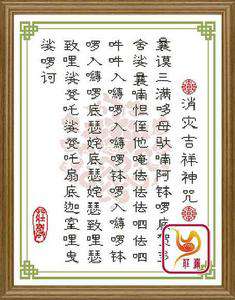 消灾吉祥神咒
曩谟三满哆母驮喃阿钵啰底
舍娑曩喃怛侄他唵佉佉呬佉呬
吽吽入嚩啰入嚩啰钵啰入嚩啰钵
啰入嚩啰底瑟姹底瑟姹瑟致哩瑟
致哩娑癹吒娑癹吒扇底迦室哩曳
娑啰诃